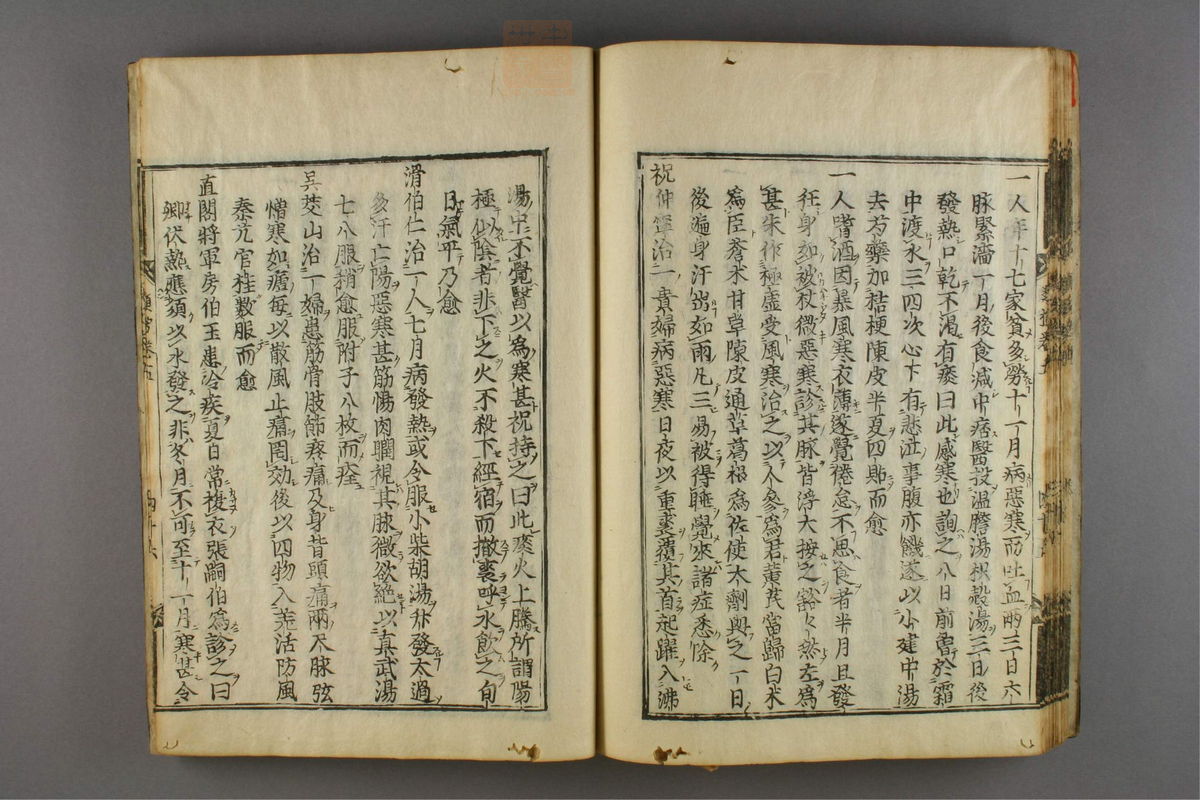 一人年十七家貧多勞十一月病惡寒而吐血兩三日六
脉緊濇一月後食減中痞醫投温膽湯枳殼湯三日後
發熱口乾不渇有痰曰此感寒也詢之八日前曽於霜
中渡水三四次心下有悲泣事腹亦饑遂以小建中湯
去芍藥加桔梗陳皮半夏四貼而愈
一人嗜酒因暴風寒衣薄遂覺倦怠不思食者半月且發
徃身如被杖微惡寒診其脉皆浮大按之豁々然左爲
甚朱作極虚受風寒治之以人參爲君黄芪當歸白朮
爲臣蒼朮甘草陳皮通草葛根爲佐使大劑與之一日
後遍身汗出如雨凡三易被得睡覺來諸症悉除
祝仲寧治一貴婦病惡寒日夜以重裘覆其首起躍入沸
湯中不覺醫以爲寒甚祝持之曰此痰火上騰所謂陽
極似陰者非下之火不殺下經宿而撤裘呼水飲之旬
日氣平乃愈
滑伯仁治一人七月病發熱或令服小柴胡湯升發太過
多汗亡陽惡寒甚筋惕肉瞤視其脉微欲絶以真武湯
七八服稍愈服附子八枚而痊
呉茭山治一婦患筋骨肢節疼痛及身背頭痛兩尺脉弦
憎寒如瘧毎以散風止痛罔効後以四物入羗活防風
秦艽官桂數服而愈
直閣將軍房伯玉患冷疾夏日常複衣張嗣伯爲診之曰
卿伏熱應須以水發之非冬月不可至十一月寒甚令